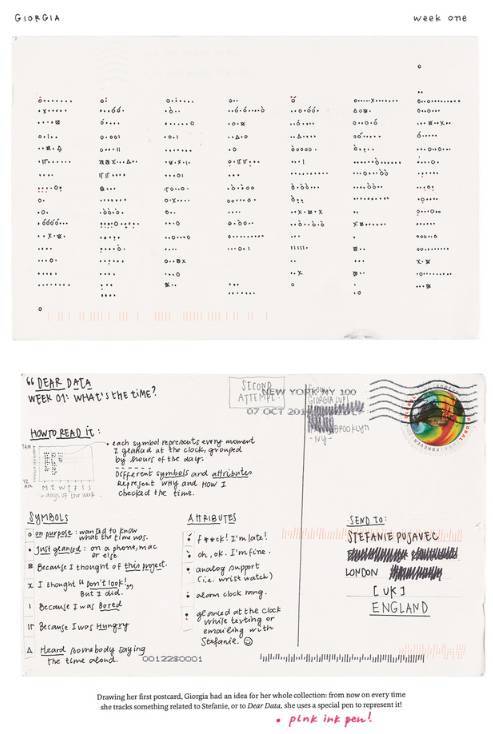 GIORGIA
week one
"DEAR DATA
WEEK 01: WHAT'S THE TIME?
SECOND
ATTEMPT
NEW YORK NY 100
07 OCT
GIORGIA LUPI
BROOKLYN
-NY-
HOW TO READ IT:
• each symbol represents every moment
I glanced at the clock, grouped
by hours of the day.
Different symbols and attributes
represent why and how I
checked the time.
M T W T F S S
days of the week
SYMBOLS
o on purpose: wanted to know
what the time was.
• Just glanced: on a phone, mac
or else
Because I thought of this project.
x I thought "Don't look!",
But I did.
I Because I was Bored
Because I was Hungry
△ Heard somebody saying
the time aloud.
ATTRIBUTES
f**ck! I'm late!
oh, ok. I'm fine.
analog support
(i.e. wrist watch)
alarm clock rang.
glanced at the clock
while texting or
emailing with
Stefanie. ☺
SEND TO:
STEFANIE POSAVEC
LONDON
[UK]
ENGLAND
0012280001
Drawing her first postcard, Giorgia had an idea for her whole collection: from now on every time
she tracks something related to Stefanie, or to Dear Data, she uses a special pen to represent it!
• pink ink pen!